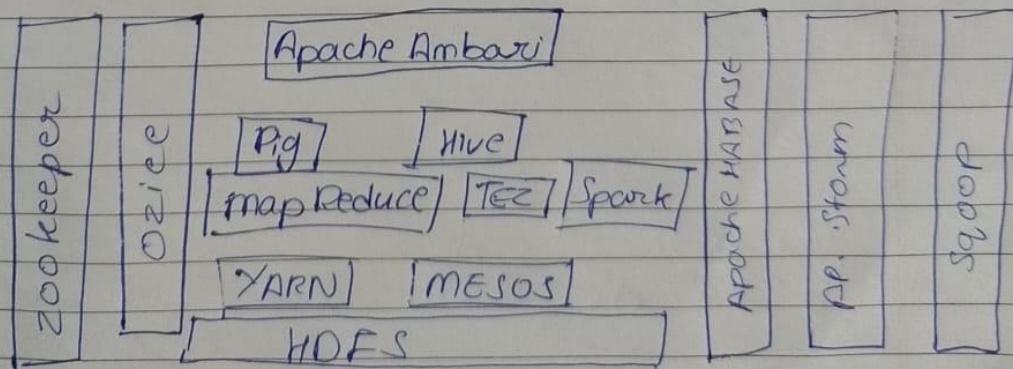 zookeeper
Oziee
Apache Ambari
Pig
Hive
MapReduce
TEZ
Spark
YARN
MESOS
HDFS
Apache HABASE
AP. Storm
Sqoop